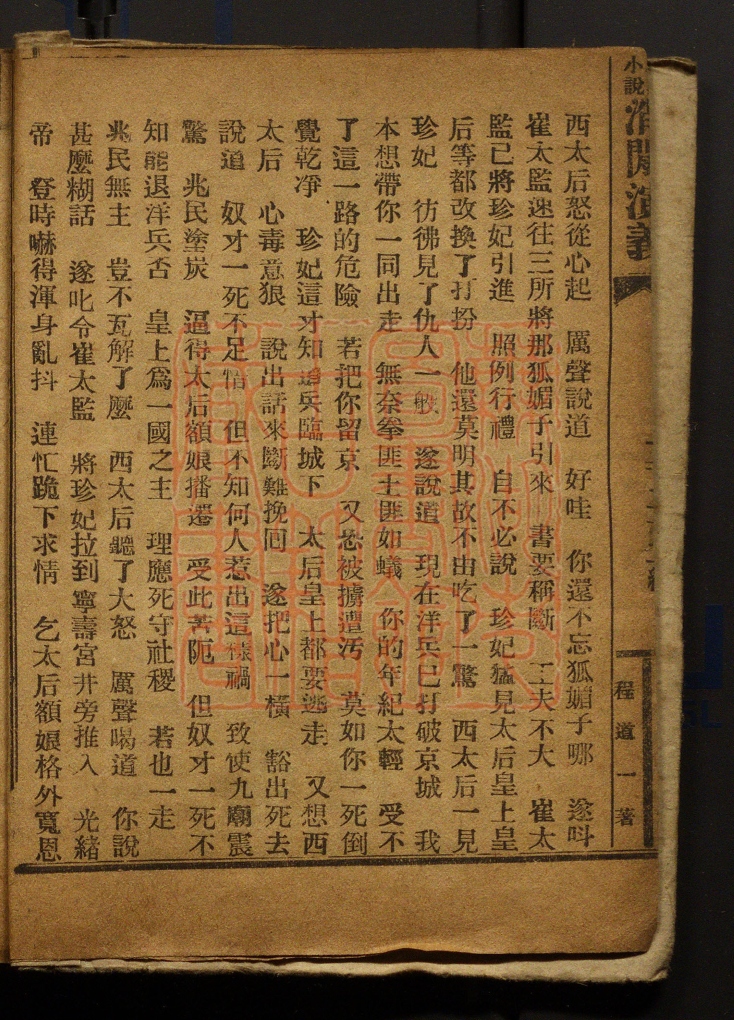 小說 消閒演義
程道一著
西太后怒從心起　厲聲說道　好哇　你還不忘狐媚子哪　遂呌
崔太監速往三所將那狐媚子引來　書要稱斷　工夫不大　崔太
監已將珍妃引進　照例行禮　自不必說　珍妃猛見太后皇上皇
后等都改換了打扮　他還莫明其故不由吃了一驚　西太后一見
珍妃　彷彿見了仇人一般　遂說道　現在洋兵已打破京城　我
本想帶你一同出走　無奈拳匪土匪如蟻　你的年紀太輕　受不
了這一路的危險　若把你留京　又恐被擄遭污　莫如你一死倒
覺乾凈　珍妃這才知追兵臨城下　太后皇上都要逃走　又想西
太后　心毒意狠　說出話來斷難挽囘　遂把心一橫　豁出死去
說道　奴才一死不足惜　但不知何人惹出這樣禍　致使九廟震
驚　兆民塗炭　逼得太后額娘播遷　受此苦阨　但奴才一死不
知能退洋兵否　皇上爲一國之主　理應死守社稷　若也一走
兆民無主　豈不瓦解了麽　西太后聽了大怒　厲聲喝道　你說
甚麽糊話　遂叱令崔太監　將珍妃拉到寧壽宮井旁推入　光緒
帝　登時嚇得渾身亂抖　連忙跪下求情　乞太后額娘格外寬恩